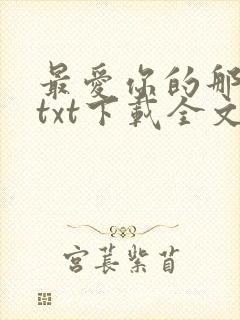 最愛你的那
txt下載全文
宮萇紫苜